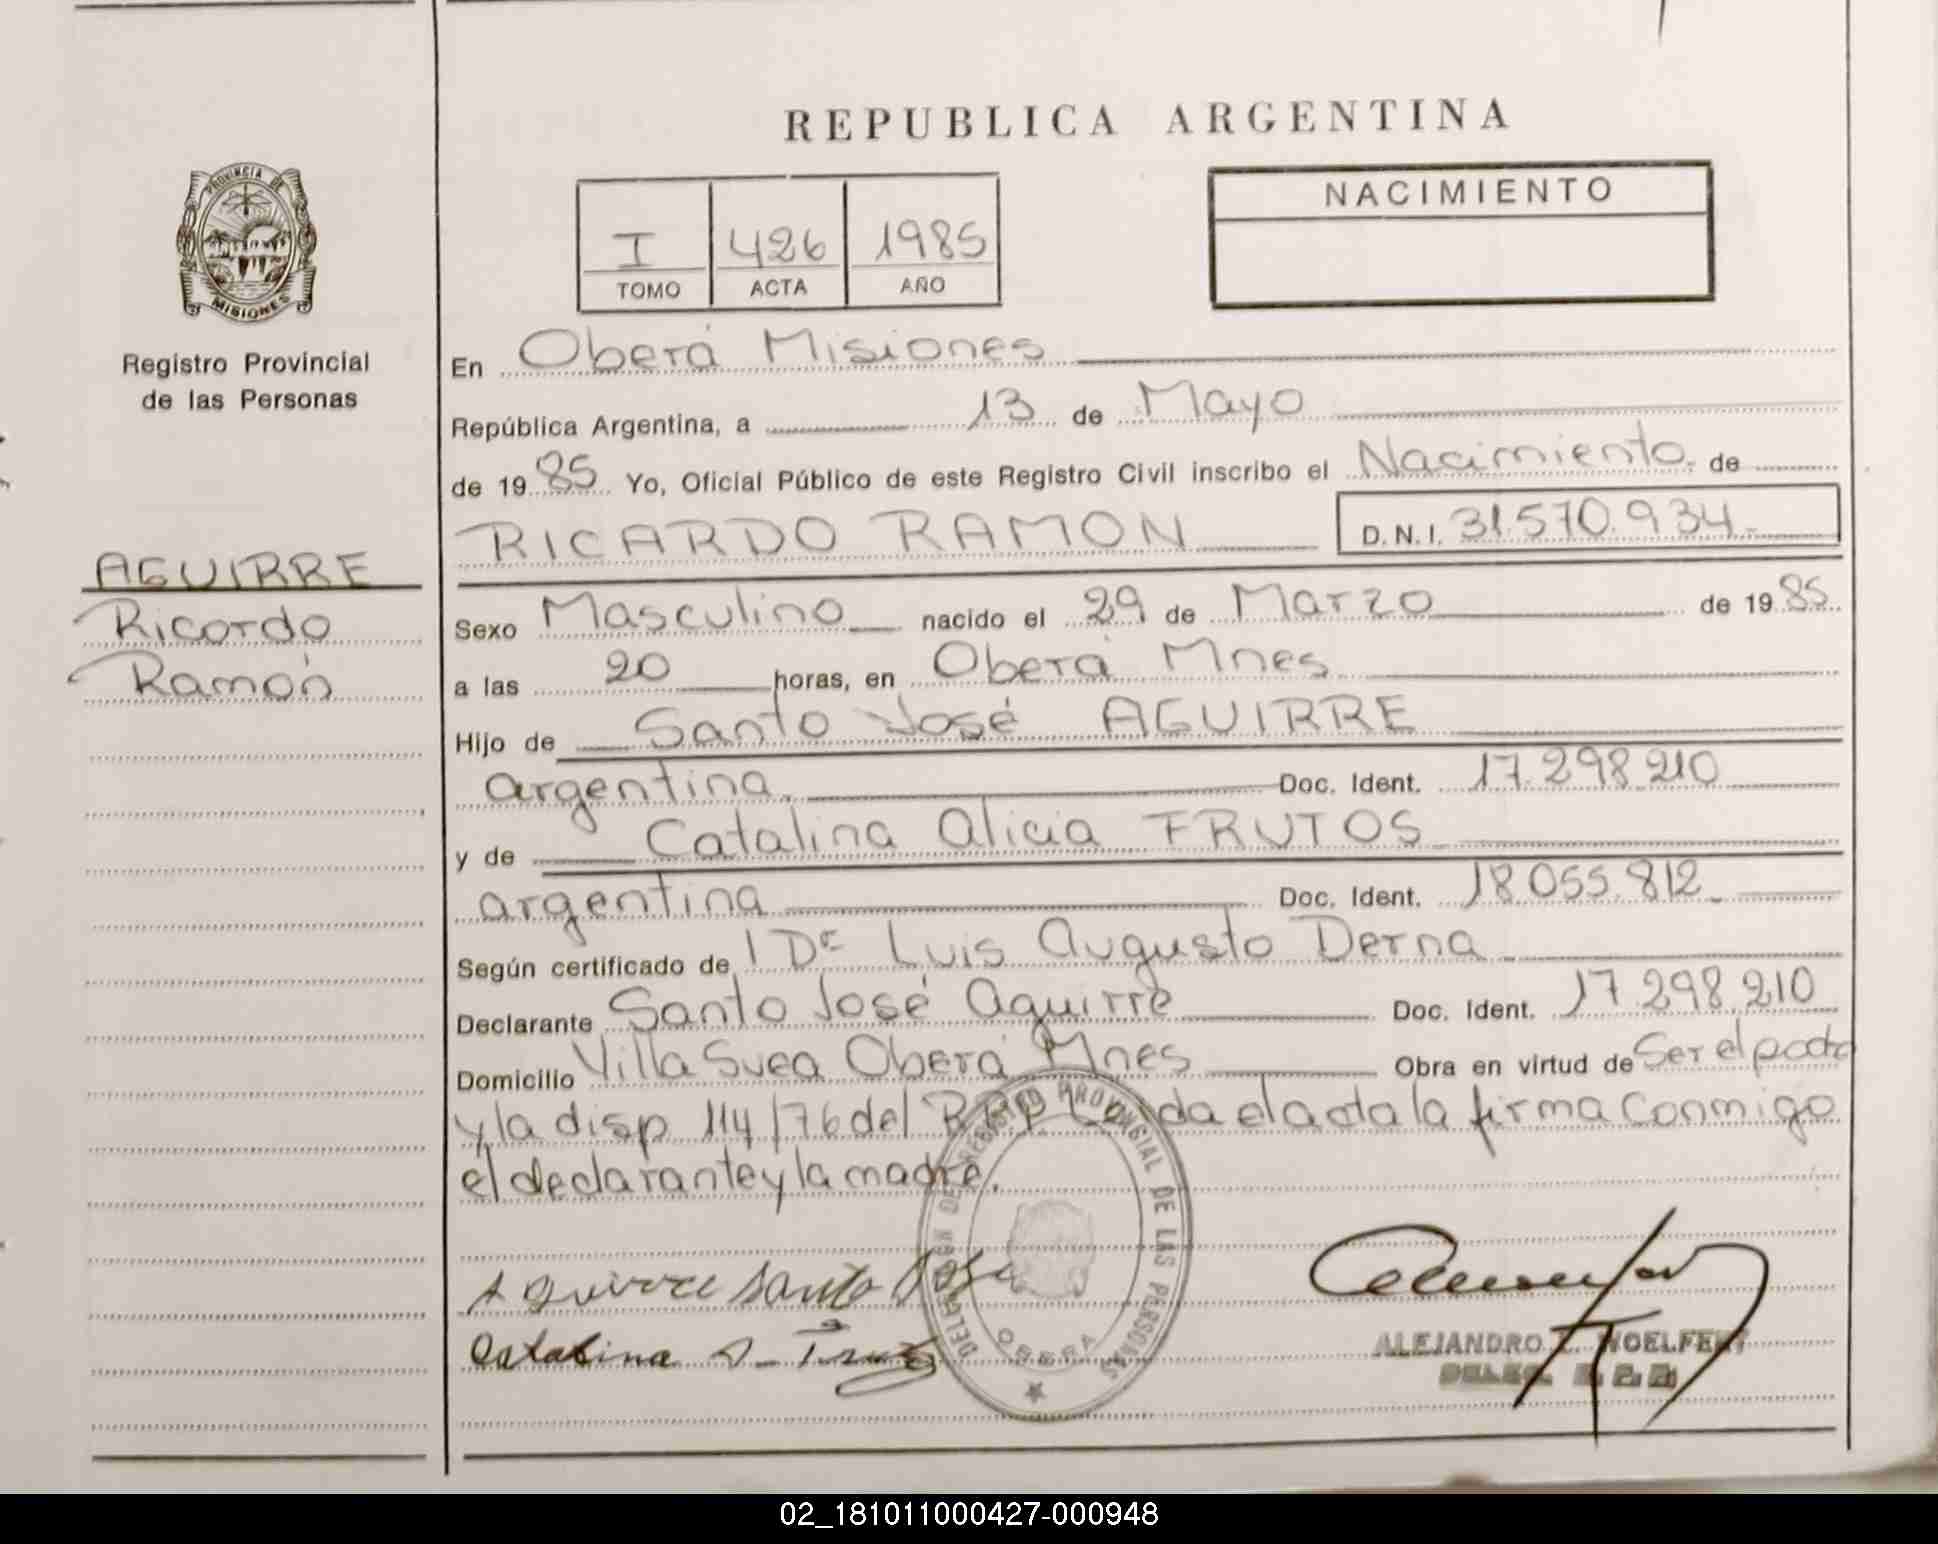 REPUBLICA ARGENTINA
PROVINCIA DE
MISIONES
Registro Provincial
de las Personas
NACIMIENTO
I 426 1985
TOMO ACTA AÑO
En Oberá Misiones
República Argentina, a 13 de Mayo
de 1985 Yo, Oficial Público de este Registro Civil inscribo el Nacimiento de
RICARDO RAMON D.N.I. 31.570.934.-
AGUIRRE
Ricardo
Ramón
Sexo Masculino nacido el 29 de Marzo de 1985
a las 20 horas, en Oberá Mnes
Hijo de Santo José AGUIRRE
argentina. Doc. Ident. 17.298.210
y de Catalina Alicia FRUTOS
argentina Doc. Ident. 18.055.812
Según certificado de Dr Luis Augusto Derna
Declarante Santo José Aguirre Doc. Ident. 17.298.210
Domicilio Villa Svea Oberá Mnes Obra en virtud de Ser el padre
y la disp 114/76 del R.P.P Leída el acta la firma Conmigo
el declarante y la madre.
Aguirre Santo José
Catalina A. Frutos
DELEGACION DEL REGISTRO PROVINCIAL DE LAS PERSONAS
OBERA
ALEJANDRO
02_181011000427-000948